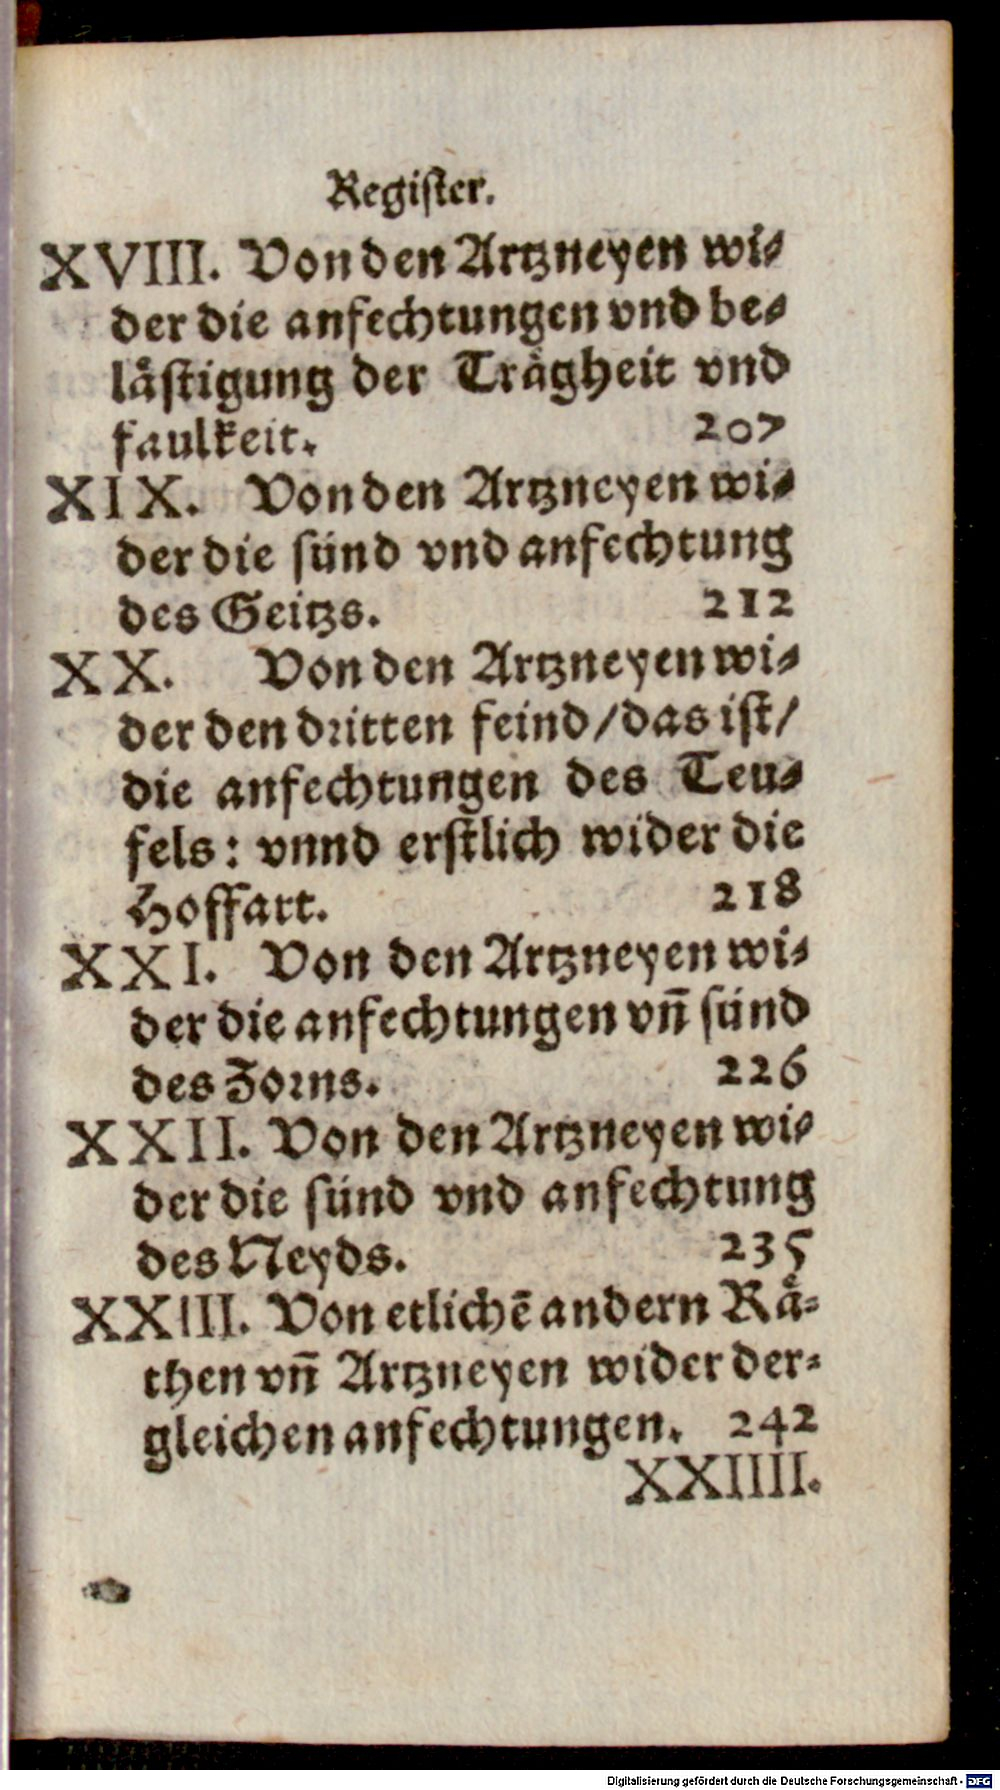 Register.
XVIII. Von den Artzneyen wi-
der die anfechtungen vnd be-
lästigung der Trägheit vnd
faulkeit. 207
XIX. Von den Artzneyen wi-
der die sünd vnd anfechtung
des Geitzs. 212
XX. Von den Artzneyen wi-
der den dritten feind/das ist/
die anfechtungen des Teu-
fels: vnnd erstlich wider die
Hoffart. 218
XXI. Von den Artzneyen wi-
der die anfechtungen vñ sünd
des Zorns. 226
XXII. Von den Artzneyen wi-
der die sünd vnd anfechtung
des Neyds. 235
XXIII. Von etlichē andern Rä-
then vñ Artzneyen wider der-
gleichen anfechtungen. 242
XXIIII.
Digitalisierung gefördert durch die Deutsche Forschungsgemeinschaft - DFG